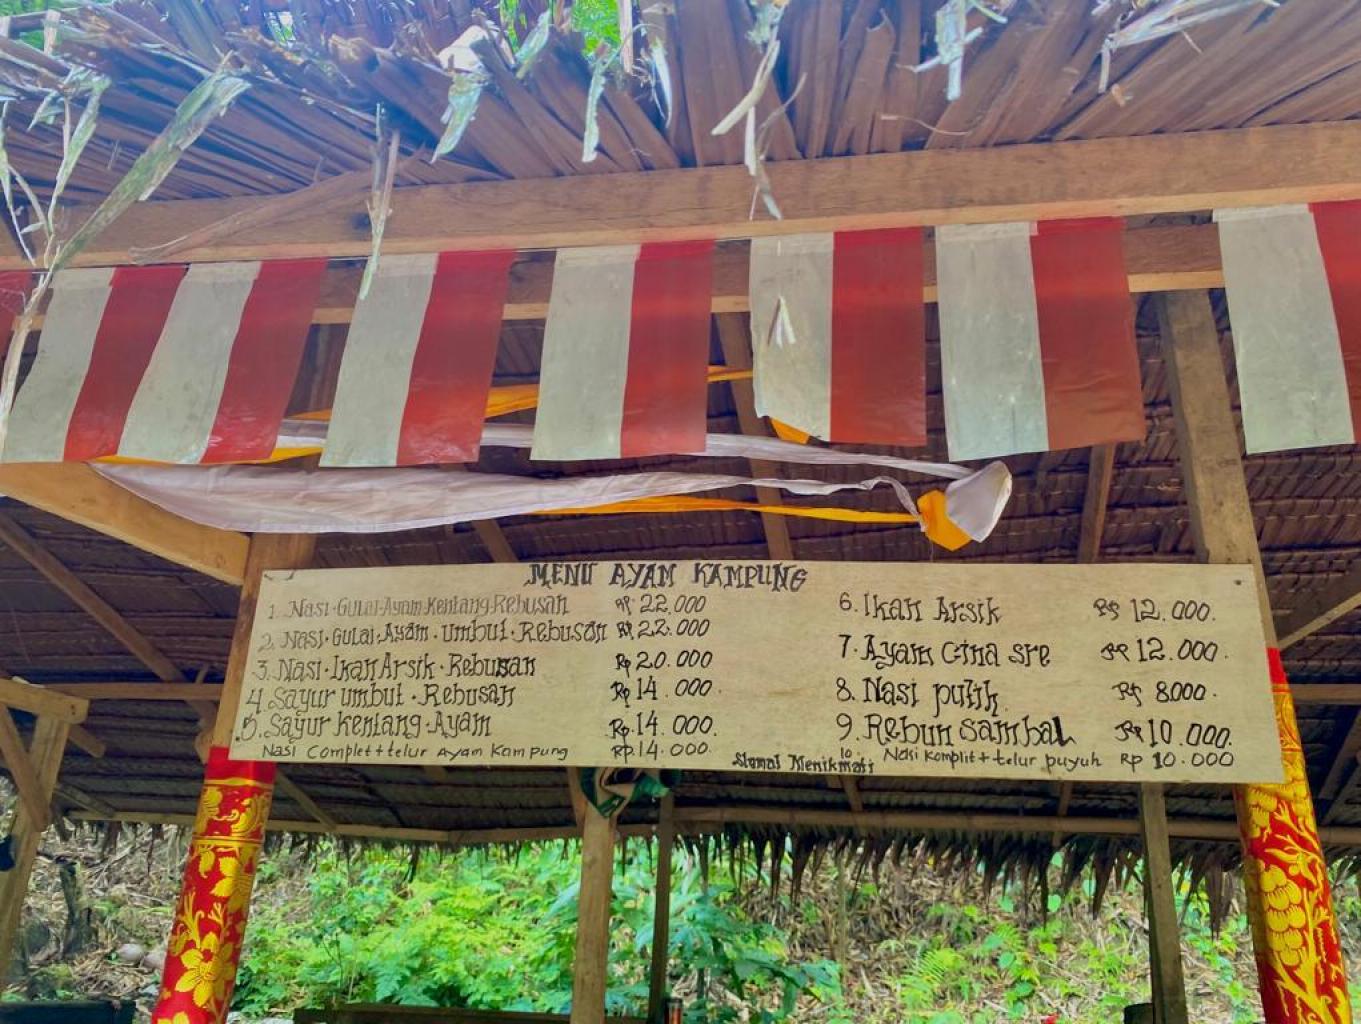 MENU AYAM KAMPUNG
1. Nasi·Gulai·Ayam·Kentang·Rebusan Rp 22.000
2. Nasi·Gulai·Ayam·umbut·Rebusan Rp 22.000
3. Nasi·Ikan Arsik·Rebusan Rp 20.000
4 Sayur umbut·Rebusan Rp 14.000.
5. Sayur Kentang·Ayam Rp.14.000.
Nasi Complet + telur Ayam Kampung Rp.14.000.
6. Ikan Arsik Rp 12.000.
7. Ayam Cina sre Rp 12.000.
8. Nasi putih Rp 8.000.
9 Rebun Sambal Rp 10.000.
10. Nasi Komplit + telur puyuh Rp 10.000
Slamat Menikmati